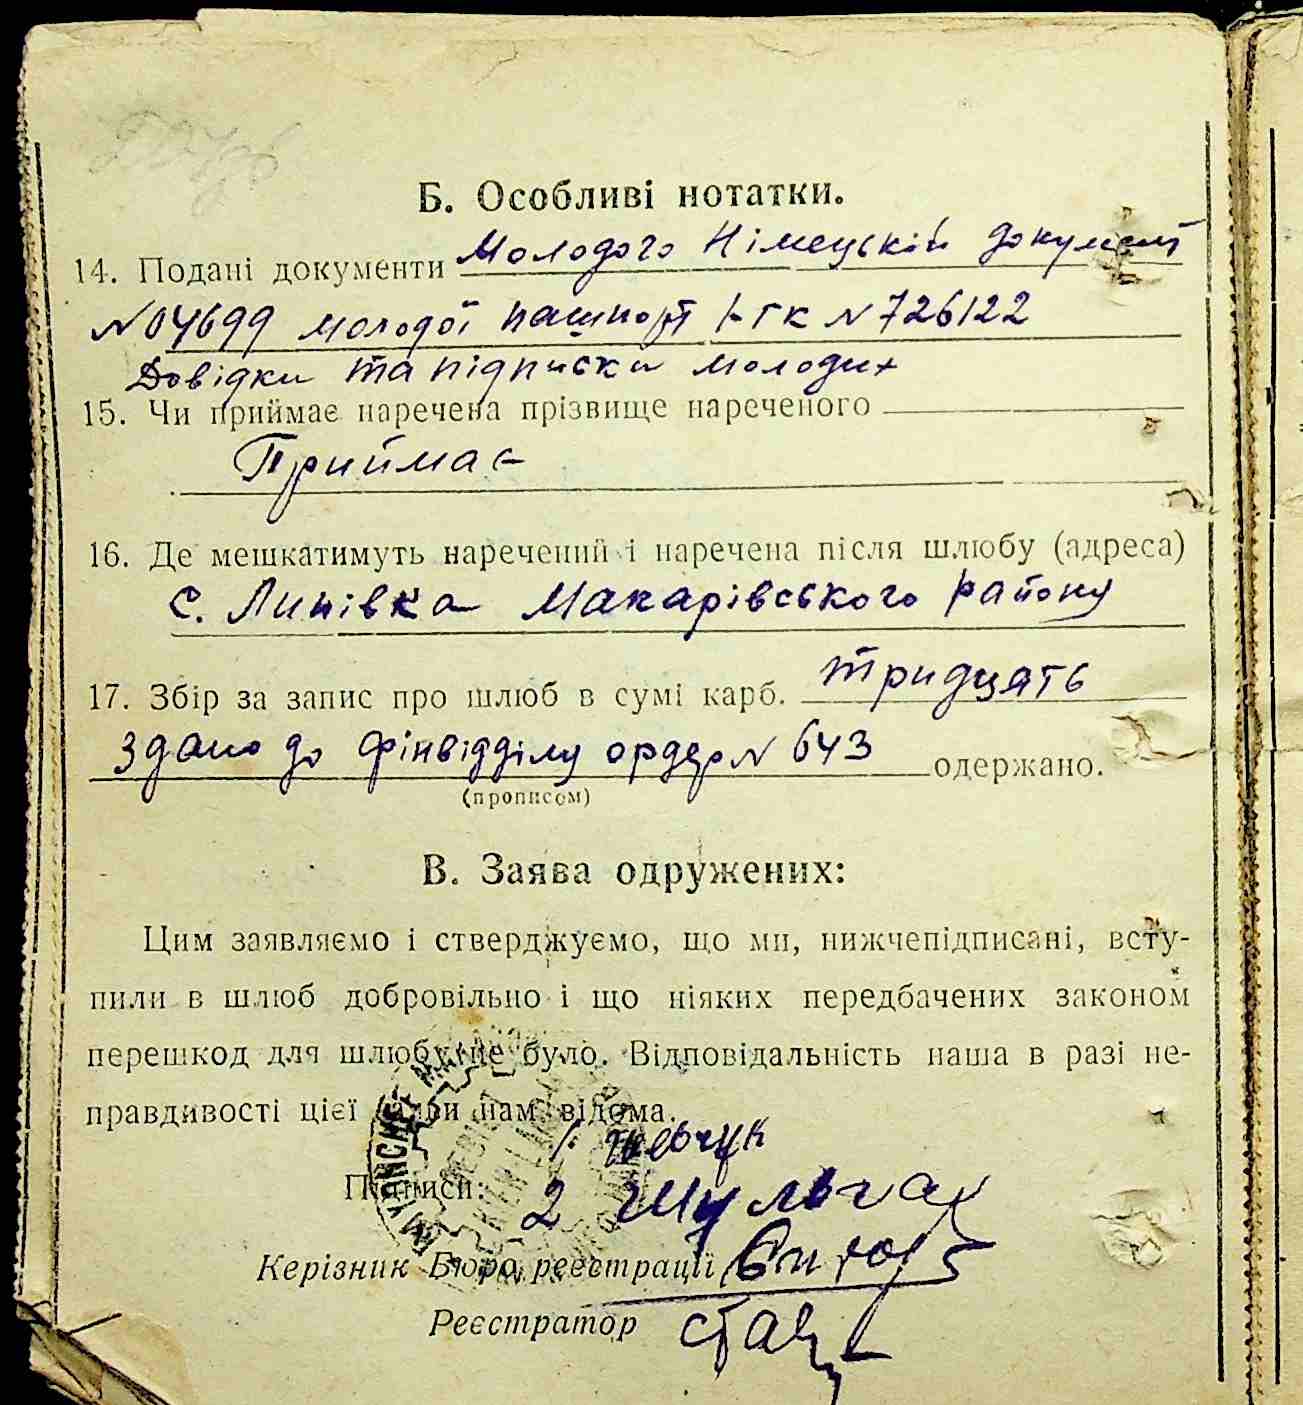 Б. Особливі нотатки.
14. Подані документи Молодого Німецькій документ
№ 04699 молодої пашпорт І-ГК № 726122
Довідки та підписки молодих
15. Чи приймає наречена прізвище нареченого
Приймає
16. Де мешкатимуть наречений і наречена після шлюбу (адреса)
С. Липівка Макарівського району
17. Збір за запис про шлюб в сумі карб. тридцять
Здано до фінвідділу ордер № 643 одержано.
(прописом)
В. Заява одружених:
Цим заявляємо і стверджуємо, що ми, нижчепідписані, всту-
пили в шлюб добровільно і що ніяких передбачених законом
перешкод для шлюбу не було. Відповідальність наша в разі не-
правдивості цієї заяви нам відома.
1.
Підписи: 2 Шульга
Керізник Бюро реєстрації
Реєстратор